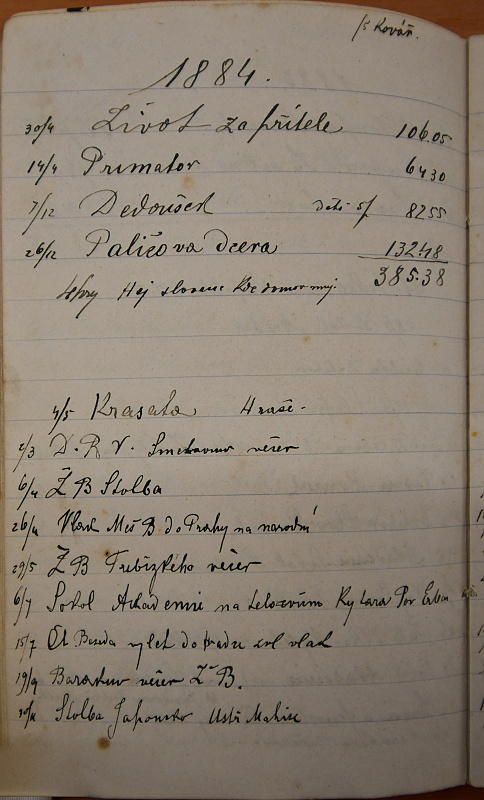 /5 Kovář.
1884.
30/4 Život za přítele 106.05
14/4 Primator 64 30
7/12 Dedoušek deti 5/ 82 55
26/12 Paličova dcera 132.48
385.38
4 hry Hej slovane Kde domov muj.
4/5 Krasata Hraše.
2/3 D. R. V. Smetanuv večer
6/4 Ž B Stolba
26/4 Vlad Meš B do Prahy na narodní
29/5 Ž B Trebizkého večer
6/7 Sokol Akademii na
15/7 Ct Beseda vylet do zvl vlak
19/9 Barakuv večer Ž B.
30/11 Stolba Japonsko Usti